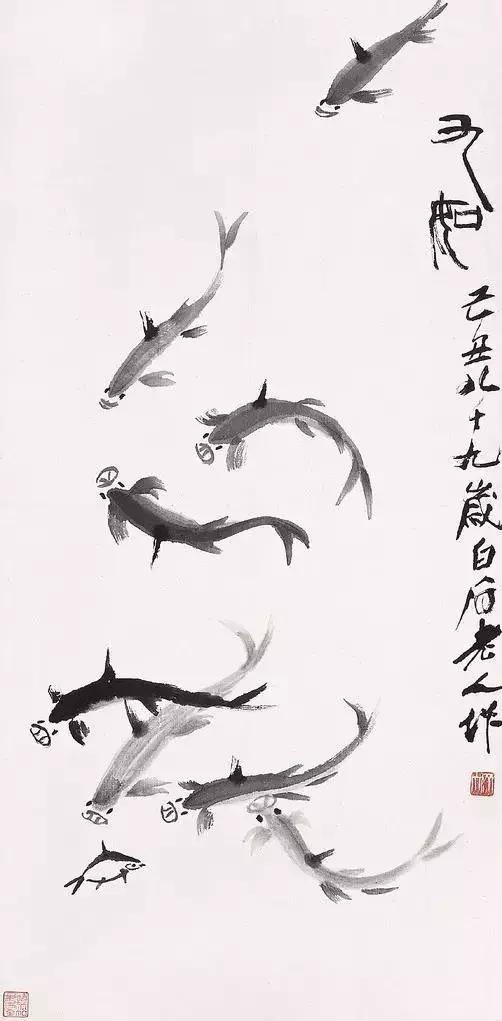 九如
己丑八十九歲白石老人作